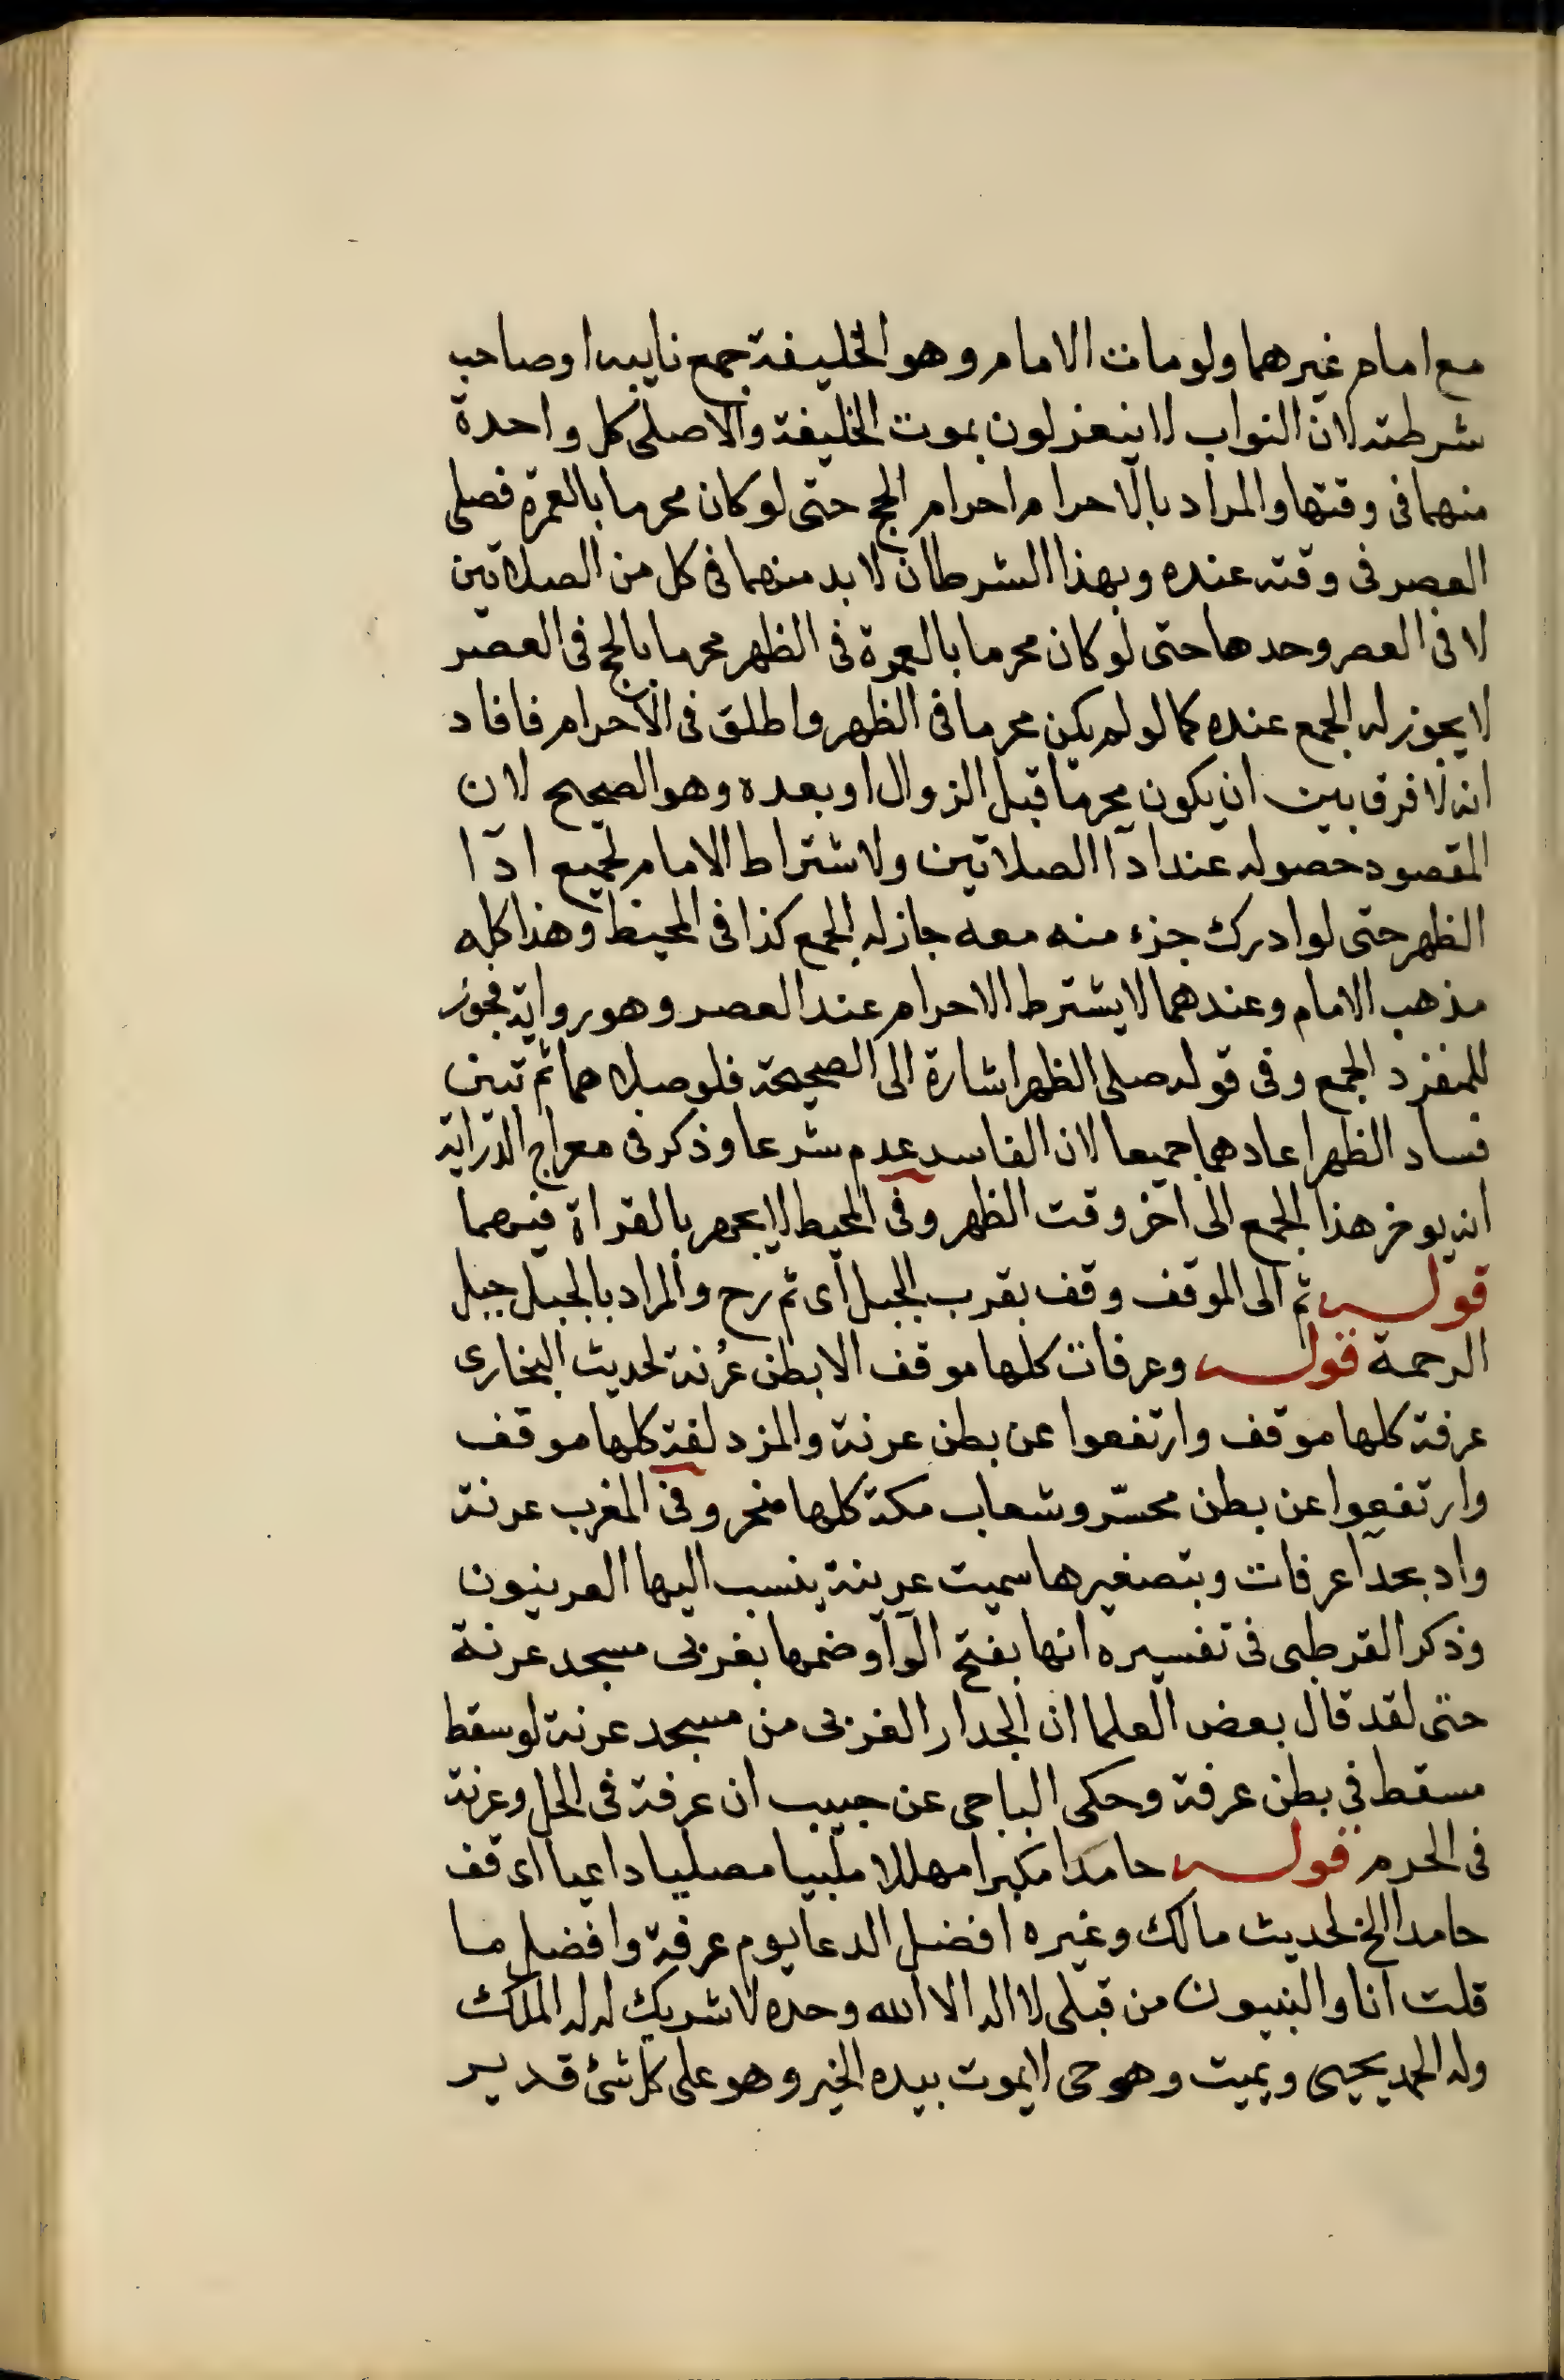 مع امام غيرهما ولو مات الامام وهو الخليفة جمع نايبه او صاحب
شرطته لان النواب لا ينعزلون بموت الخليفة والاصلى كل واحدة
منهما فى وقتها والمراد بالاحرام احرام الحج حتى لو كان محرما بالعمرة فصلى
العصر فى وقته عنده وبهذا الشرطان لا بد منهما فى كل من الصلاتين
لا فى العصر وحدها حتى لو كان محرما بالعمرة فى الظهر محرما بالحج فى العصر
لا يجوز له الجمع عنده كما لو لم يكن محرما فى الظهر واطلق فى الاحرام فافاد
انه لا فرق بين ان يكون محرما قبل الزوال او بعده وهو الصحيح لان
المقصود حصوله عند اداآ الصلاتين ولا شتراط الامام لجميع ادآ ا
الظهر حتى لو ادرك جزء منه معه جاز له الجمع كذا فى المحيط وهذا كله
مذهب الامام وعندهما لا يشترط الاحرام عند العصر وهو رواية فجوز
للمنفرد الجمع وفى قوله صلى الظهر اشارة الى الصحيحة فلو صلاهما ثم تبين
فساد الظهر اعادهما جميعا لان الفاسد عدم شرعا وذكر فى معراج الدراية
انه يوخر هذا الجمع الى اخر وقت الظهر وفى المحيط لا يجهر بالقراة فيهما
قوله ثم الى الموقف وقف بقرب الجبل اى ثم رح والمراد بالجبل جبل
الرحمة قوله وعرفات كلها موقف الا بطن عُرنة لحديث البخارى
عرفة كلها موقف وارتفعوا عن بطن عرنة والمزدلفة كلها موقف
وارتفعوا عن بطن محسّر وشعاب مكة كلها منحر وفى المغرب عرنة
واد بحدآ عرفات وبتصغيرها سميت عرينة ينسب اليها العرينيون
وذكر القرطبى فى تفسيره انها بفتح الرآ وضمها بغربى مسجد عرنة
حتى لقد قال بعض العلما ان الجدار الغربى من مسجد عرنة لو سقط
مسقط فى بطن عرفة وحكى الباجى عن حبيب ان عرفة فى الحل وعرنة
فى الحرم قوله حامدا مكبرا مهللا ملبيا مصليا داعيا اى قف
حامدا الخ لحديث مالك وغيره افضل الدعا يوم عرفة وافضل ما
قلت انا والنبيون من قبلى لا اله الا الله وحده لا شريك له له الملك
وله الحمد يحيى ويميت وهو حى لا يموت بيده الخير وهو على كل شئ قدير